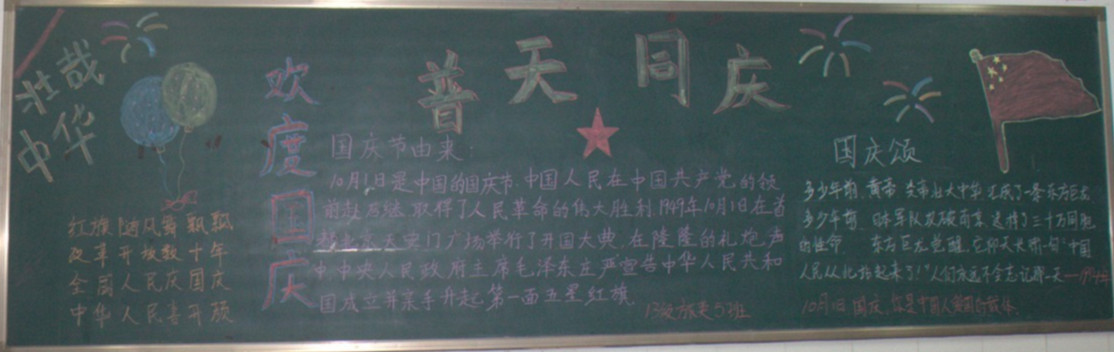 壮哉
中华
欢度国庆
普天同庆
红旗随风舞飘飘
改革开放数十年
全国人民庆国庆
中华人民喜开颜
国庆节由来:
10月1日是中国的国庆节.中国人民在中国共产党的领
前赴后继.取得了人民革命的伟大胜利.1949年10月1日在首
天安门广场举行了开国大典.在隆隆的礼炮声
中中央人民政府主席毛泽东庄严宣告中华人民共和
国成立并亲手升起第一面五星红旗
13级 5班
国庆颂
多少年前,黄帝 大中华 了一条东方巨龙
多少年前 日本军队攻破南京 三十万同胞
的性命 东方巨龙觉醒 中国
人民从此站起来了!"人们永远不会忘记那一天
10月1日 国庆 中国人